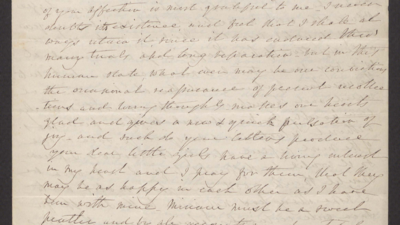 of your affection is most grateful to me. I never
doubt its existence, and feel that I shall al
ways retain it since it has endured thro'
many trials and long separation. but in this
human state what ever may be our convictions
the occasional reappearance of present recollec
tions and loving thoughts makes our hearts
glad, and gives a new & quick pulsation of
joy. and such do your letters produce
your dear little girls have a living interest
in my heart and I pray for them, that they
may be as happy in each other as I have
been with mine. Minnie must be a sweet